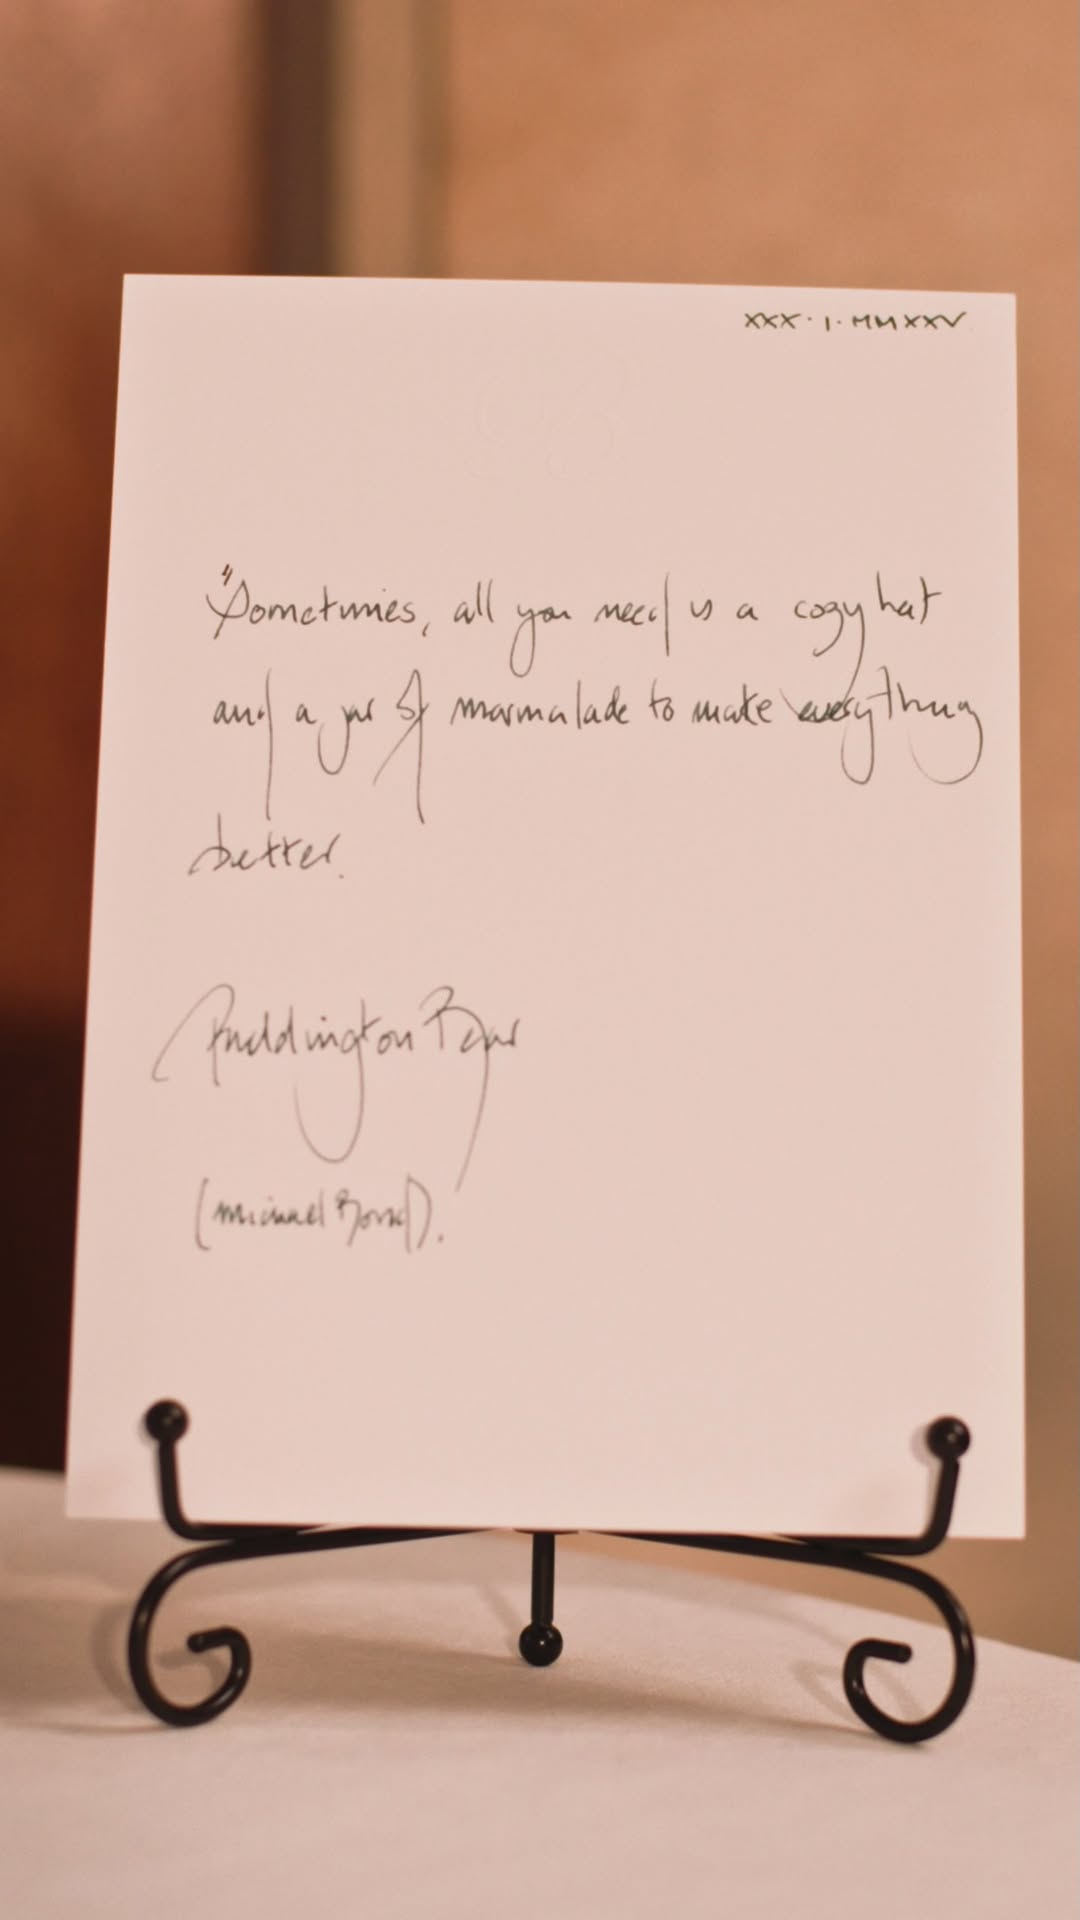 XXX · I · MMXXV
"Sometimes, all you need is a cozy hat
and a jar of marmalade to make everything
better.
Paddington Bear
(Michael Bond).